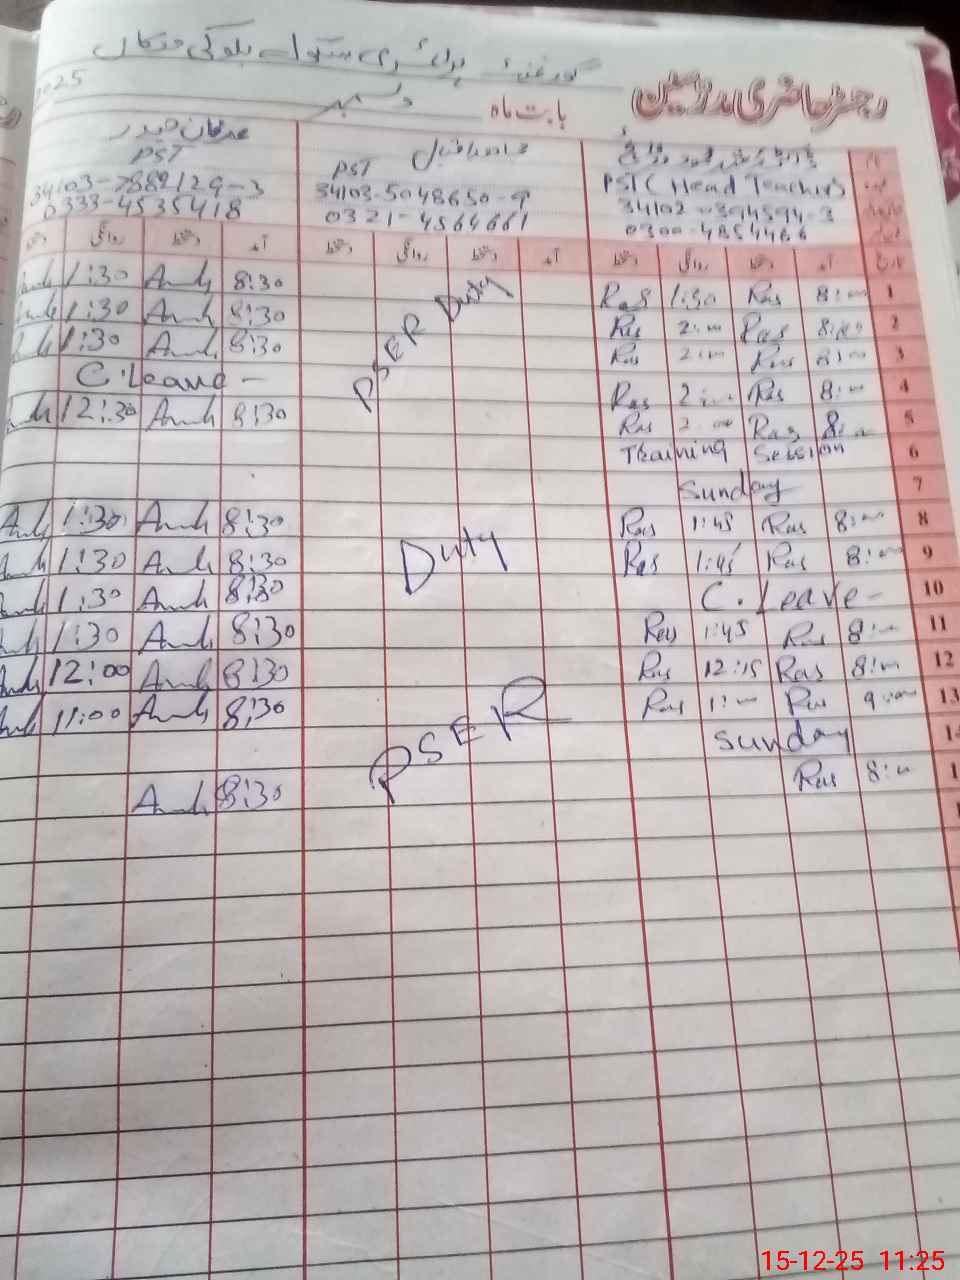 گورنمنٹ پرائمری سکول بلوکی ورکاں
رجسٹر حاضری مدرسین بابت ماہ دسمبر 2025
PST (Head Teacher) PST عدنان حیدر PST
34102-0394594-3 34103-5048650-9 34103-7882129-3
0300-4854466 0321-4564661 0333-4535418
تاریخ آمد دستخط روانگی دستخط آمد دستخط روانگی دستخط آمد دستخط روانگی دستخط
1 8:00 Ras 1:30 Ras PSER Duty 8:30 1:30
2 8:00 Ras 2:00 Ras 8:30 1:30
3 8:00 Ras 2:00 Ras 8:30 1:30
4 8:00 Ras 2:00 Ras C.Leave -
5 8:00 Ras 2:00 Ras 8:30 12:30
6 Training Session
7 Sunday
8 8:00 Ras 1:45 Ras 8:30 1:30
9 8:00 Ras 1:45 Ras Duty 8:30 1:30
10 C. Leave - 8:30 1:30
11 8:00 Ras 1:45 Ras 8:30 1:30
12 8:00 Ras 12:15 Ras 8:30 12:00
13 9:00 Ras 1:00 Ras PSER 8:30 11:00
14 Sunday
8:00 Ras 8:30
15-12-25 11:25